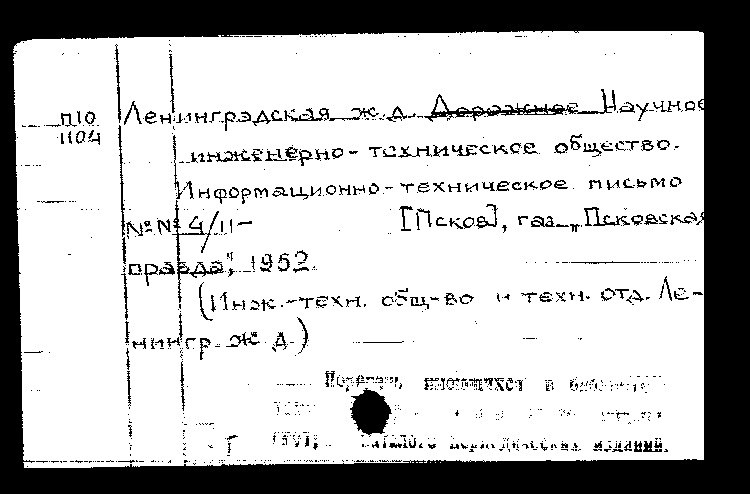 П10 Ленинградская ж.д. Дорожное Научное
1104
инженерно-техническое общество.
Информационно-техническое письмо
№№ 4/11- [Псков], газ. "Псковская
правда", 1952.
(Инж.-техн. общ-во и техн. отд. Ле-
нингр. ж.д.)
Перечень имеющихся в
каталоге периодических изданий.